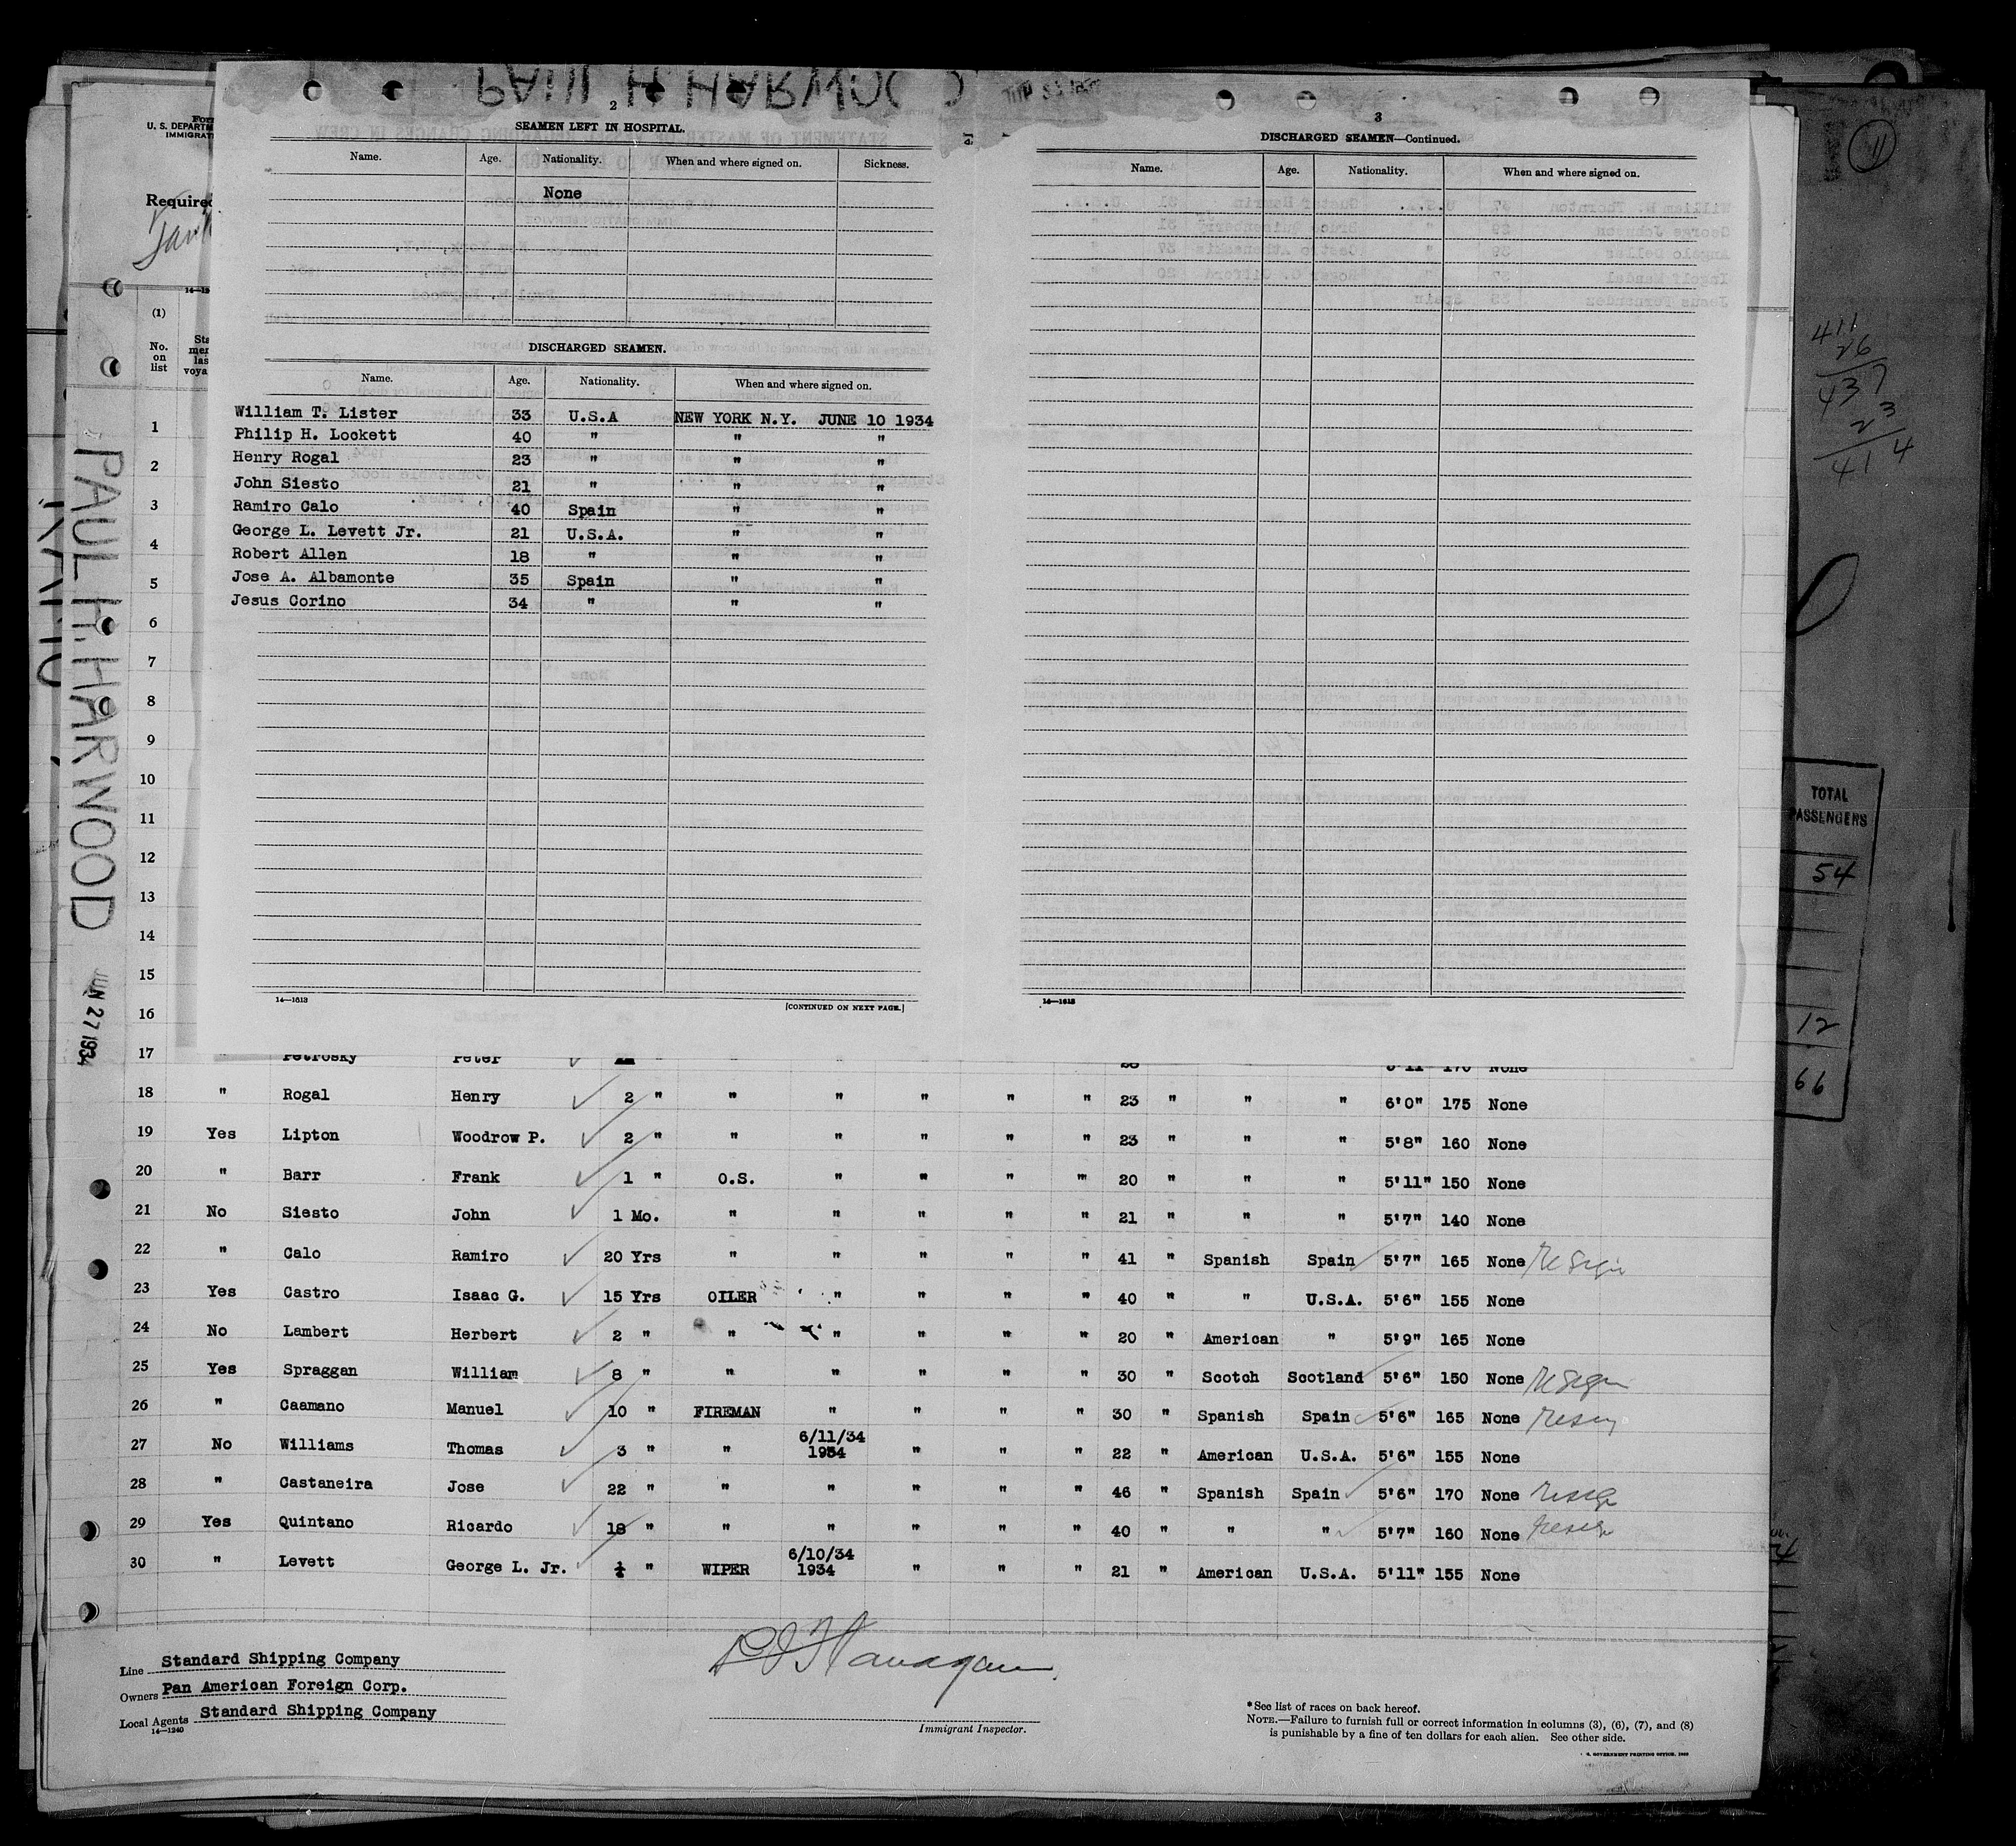 2
SEAMEN LEFT IN HOSPITAL.
Name. Age. Nationality. When and where signed on. Sickness.
None
DISCHARGED SEAMEN.
Name. Age. Nationality. When and where signed on.
William T. Lister 33 U.S.A NEW YORK N.Y. JUNE 10 1934
Philip H. Lockett 40 " " "
Henry Rogal 23 " " "
John Siesto 21 " " "
Ramiro Calo 40 Spain " "
George L. Levett Jr. 21 U.S.A. " "
Robert Allen 18 " " "
Jose A. Albamonte 35 Spain " "
Jesus Corino 34 " " "
14—1613 [CONTINUED ON NEXT PAGE.]
3
DISCHARGED SEAMEN—Continued.
Name. Age. Nationality. When and where signed on.
14—1613
U. S. DEPART
IMMIGRAT
Required
(1)
No. on list
1
2
3
4
5
6
7
8
9
10
11
12
13
14
15
16
PAUL H. HARWOOD
JUN 27 1934
17 Petrosky Peter 170 None
18 " Rogal Henry 2 " " " " " " 23 " " " 6'0" 175 None
19 Yes Lipton Woodrow P. 2 " " " " " " 23 " " " 5'8" 160 None
20 " Barr Frank 1 " O.S. " " " " 20 " " " 5'11" 150 None
21 No Siesto John 1 Mo. " " " " " 21 " " " 5'7" 140 None
22 " Calo Ramiro 20 Yrs " " " " " 41 " Spanish Spain 5'7" 165 None
23 Yes Castro Isaac G. 15 Yrs OILER " " " " 40 " " U.S.A. 5'6" 155 None
24 No Lambert Herbert 2 " " " " " " 20 " American " 5'9" 165 None
25 Yes Spraggan William 8 " " " " " " 30 " Scotch Scotland 5'6" 150 None
26 " Caamano Manuel 10 " FIREMAN " " " " 30 " Spanish Spain 5'6" 165 None
27 No Williams Thomas 3 " " 6/11/34 1934 " " " 22 " American U.S.A. 5'6" 155 None
28 " Castaneira Jose 22 " " " " " " 46 " Spanish Spain 5'6" 170 None
29 Yes Quintano Ricardo 18 " " " " " " 40 " " " 5'7" 160 None
30 " Levett George L. Jr. " WIPER 6/10/34 1934 " " " 21 " American U.S.A. 5'11" 155 None
Line Standard Shipping Company
Owners Pan American Foreign Corp.
Local Agents Standard Shipping Company
14—1240
Immigrant Inspector.
*See list of races on back hereof.
NOTE.—Failure to furnish full or correct information in columns (3), (6), (7), and (8)
is punishable by a fine of ten dollars for each alien. See other side.
11
411
26
437
23
414
TOTAL
PASSENGERS
54
12
66